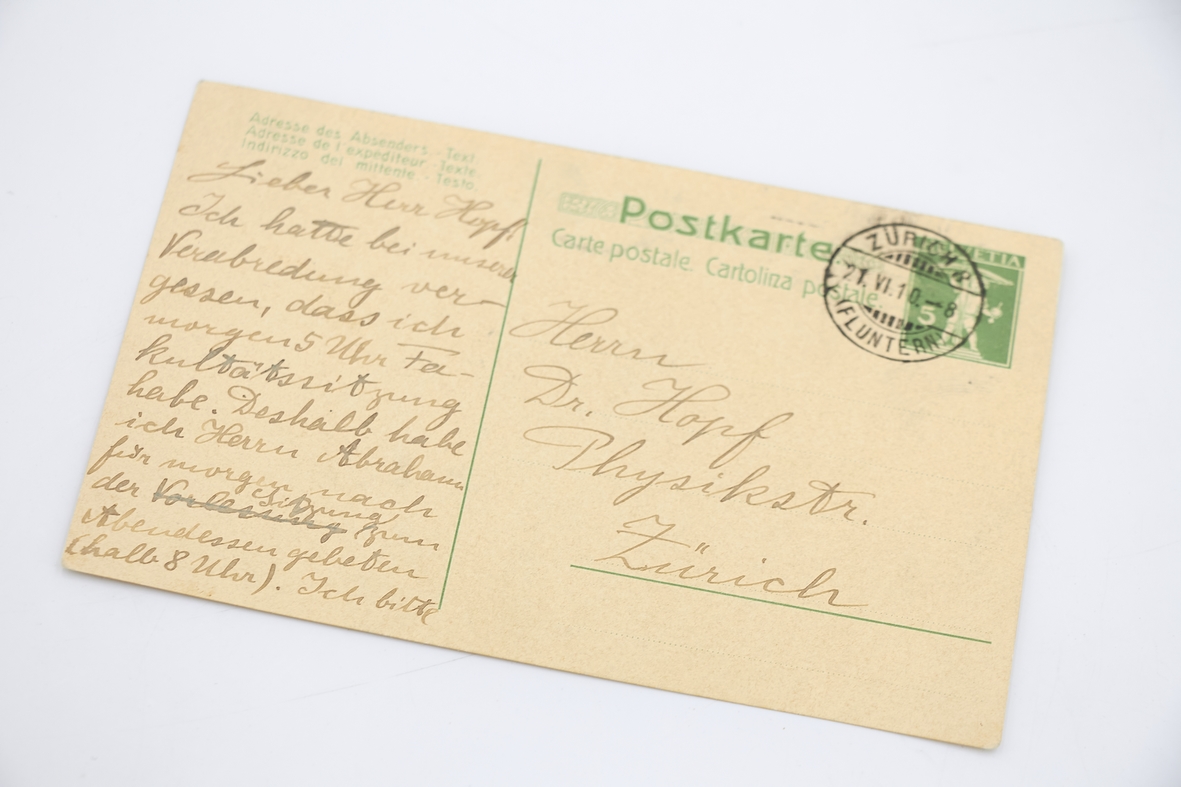 Adresse des Absenders - Text.
Adresse de l'expéditeur - Texte.
Indirizzo del mittente - Testo.
Lieber Herr Hopf!
Ich hatte bei unserer
Verabredung ver-
gessen, dass ich
morgen 5 Uhr Fa-
kultätssitzung
habe. Deshalb habe
ich Herrn Abraham
für morgen nach
der Vorlesung Sitzung zum
Abendessen gebeten
(halb 8 Uhr). Ich bitte
Postkarte
Carte postale. Cartolina postale.
ZÜRICH
21.VI.10.-8
(FLUNTERN)
HELVETIA
5
Herrn
Dr. Hopf
Physikstr.
Zürich